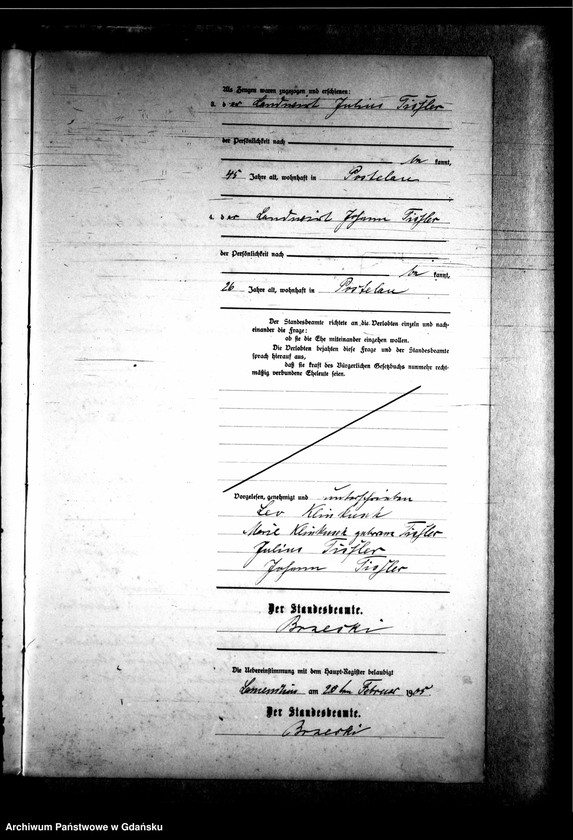 Als Zeugen waren zugezogen und erschienen:
3. der Landwirt Julius Tissler
der Persönlichkeit nach
be kannt,
45 Jahre alt, wohnhaft in Postelau
4. der Landwirt Johann Tissler
der Persönlichkeit nach
be kannt,
26 Jahre alt, wohnhaft in Postelau
Der Standesbeamte richtete an die Verlobten einzeln und nach-
einander die Frage:
ob sie die Ehe miteinander eingehen wollen.
Die Verlobten bejahten diese Frage und der Standesbeamte
sprach hierauf aus,
daß sie kraft des Bürgerlichen Gesetzbuchs nunmehr recht-
mäßig verbundene Eheleute seien.
Vorgelesen, genehmigt und unterschrieben
Leo Klinkusch
Marie Klinkusch geborene Tissler
Julius Tissler
Johann Tissler
Der Standesbeamte.
Brzeski
Die Uebereinstimmung mit dem Haupt-Register beglaubigt
am 28ten Februar 1905
Der Standesbeamte.
Brzeski
Archiwum Państwowe w Gdańsku